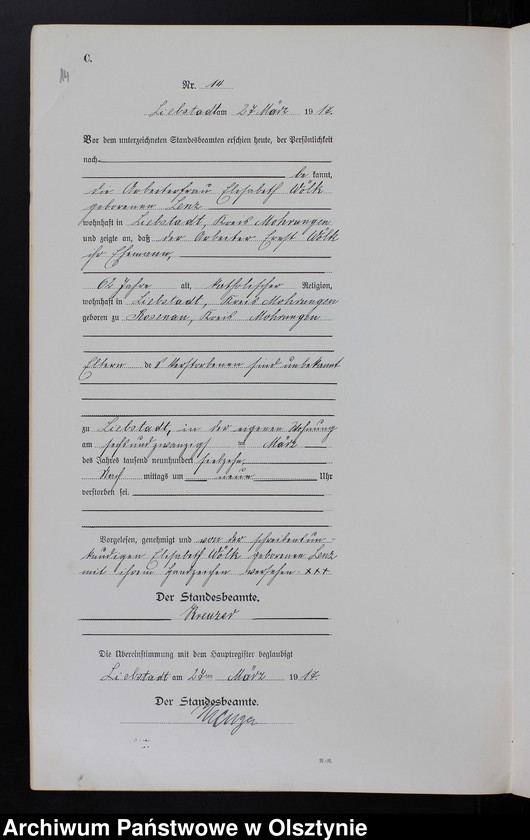 C.
14
Nr. 14
Liebstadt am 27 März 1917.
Vor dem unterzeichneten Standesbeamten erschien heute, der Persönlichkeit
nach
be kannt,
die Arbeiterfrau Elisabeth Wölk
geborenen Lenz
wohnhaft in Liebstadt, Kreis Mohrungen
und zeigte an, daß der Arbeiter Ernst Wölk
ihr Ehemann,
62 Jahre alt, katholischer Religion,
wohnhaft in Liebstadt, Kreis Mohrungen
geboren zu Rosenau, Kreis Mohrungen
Eltern de s Verstorbenen sind unbekannt
zu Liebstadt, in der eigenen Wohnung
am sechsundzwanzigsten März
des Jahres tausend neunhundert siebzehn
Nach mittags um neun Uhr
verstorben sei.
Vorgelesen, genehmigt und von der schreibensun-
kundigen Elisabeth Wölk geborenen Lenz
mit ihrem Handzeichen versehen +++
Der Standesbeamte.
Die Übereinstimmung mit dem Hauptregister beglaubigt
Liebstadt am 27ten März 1917.
Der Standesbeamte.
Archiwum Państwowe w Olsztynie